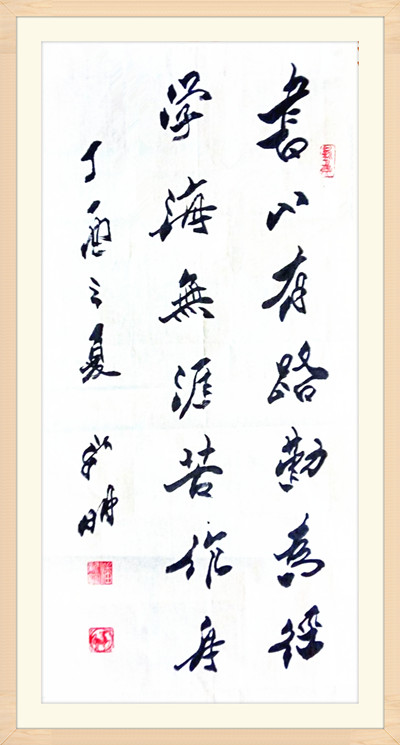 書山有路勤為徑
学海無涯苦作舟
丁酉之夏